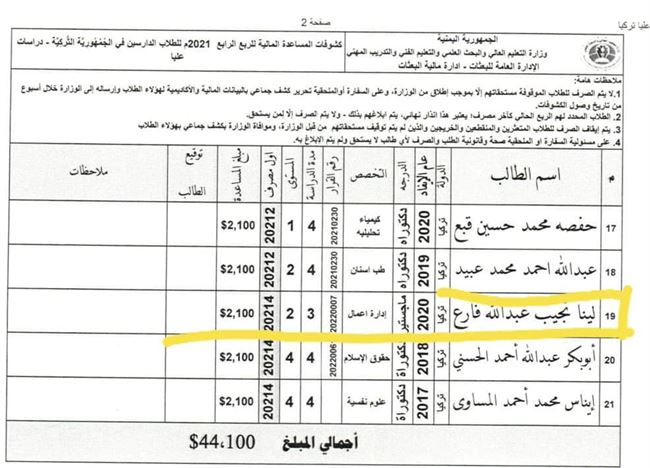 عليا تركيا
صفحة 2
الجمهورية اليمنية
وزارة التعليم العالي والبحث العلمي والتعليم الفني والتدريب المهني
الإدارة العامة للبعثات - ادارة مالية البعثات
كشوفات المساعدة المالية للربع الرابع 2021م للطلاب الدارسين في الجُمْهُوريَّة التُّركيَّة - دراسات عليا
ملاحظات هامة:
1. لا يتم الصرف للطلاب الموقوفة مستحقاتهم إلّا بموجب إطلاق من الوزارة، وعلى السفارة أوالملحقية تحرير كشف جماعي بالبيانات المالية والأكاديمية لهؤلاء الطلاب وإرساله إلى الوزارة خلال أسبوع
من تاريخ وصول الكشوفات.
2. الطلاب المحدد لهم الربع الحالي كآخر مصرف؛ يعتبر هذا انذار نهائي، يتم ابلاغهم بذلك - ولا يتم الصرف إلّا لمن يستحق.
3. يتم إيقاف الصرف للطلاب المتعثرين والمنقطعين والخريجين والذين لم يتم توقيف مستحقاتهم من قبل الوزارة، وموافاة الوزارة بكشف جماعي بهؤلاء الطلاب
4. على مسئولية السفارة أو الملحقية صحة وقانونية الطلب والصرف لأي طالب لا يستحق ولم يتم الإبلاغ به.
م اسم الطالب الدولة عام الإيفاد الدرجه التخصص رقم القرار مدة الدراسة المستوى اول مصرف مبلغ المساعدة توقيع الطالب ملاحظات
17 حفصه محمد حسين قبع تركيا 2020 دكتوراه كيمياء تحليليه 20210230 4 1 20212 $2,100
18 عبدالله احمد محمد عبيد تركيا 2019 دكتوراه طب اسنان 20210230 4 2 20212 $2,100
19 لينا نجيب عبدالله فارع تركيا 2020 ماجستير إدارة اعمال 20220007 3 2 20214 $2,100
20 أبوبكر عبدالله أحمد الحسني تركيا 2018 دكتوراة حقوق الإسلام 4 4 20214 $2,100
21 إيناس محمد أحمد المساوى تركيا 2017 دكتوراة علوم نفسية 4 4 20214 $2,100
أجمالي المبلغ $44,100